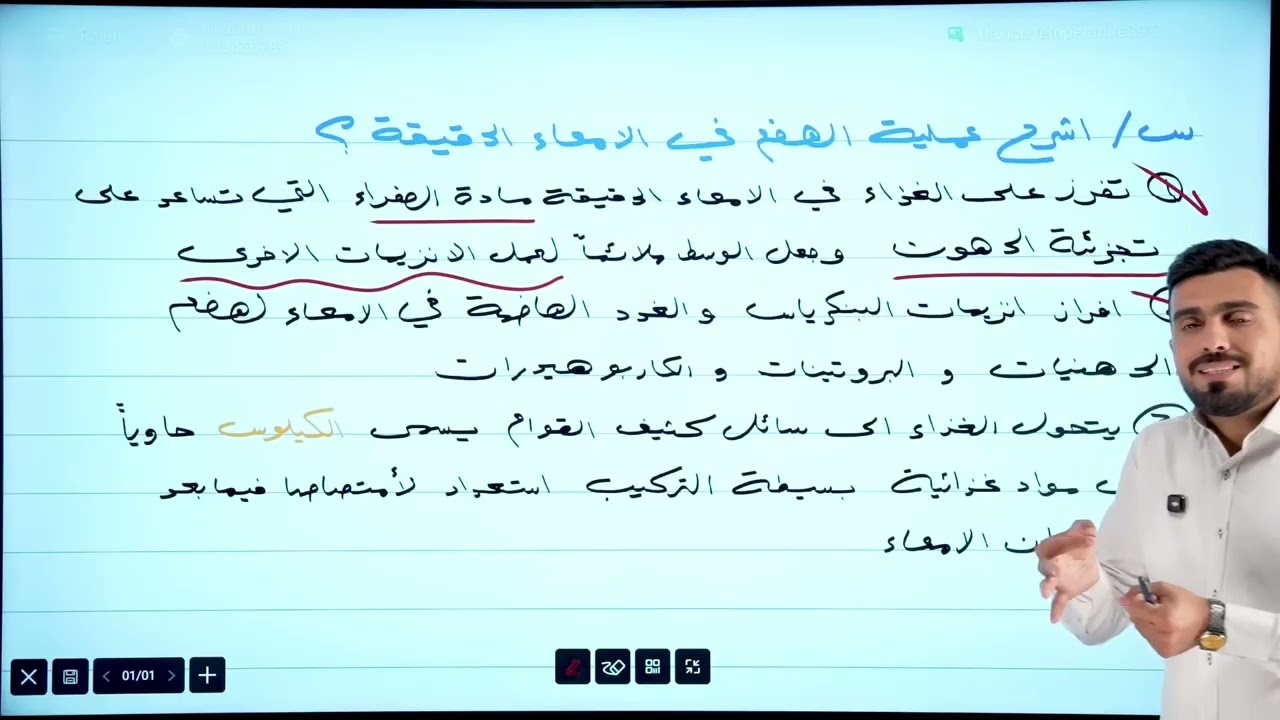 Device Temperature
س/ اشرح عملية الهضم في الامعاء الدقيقة ؟
① تفرز على الغذاء في الامعاء الدقيقة مادة الصفراء التي تساعد على
تجزئة الدهون وجعل الوسط ملائماً لعمل الانزيمات الاخرى
افراز انزيمات البنكرياس والغدد الهاضمة في الامعاء لهضم
الدهنيات و البروتينات و الكاربوهيدرات
يتحول الغذاء الى سائل كثيف القوام يسمى الكيلوس حاوياً
مواد غذائية بسيطة التركيب استعداد لأمتصاصها فيما بعد
الامعاء
01/01